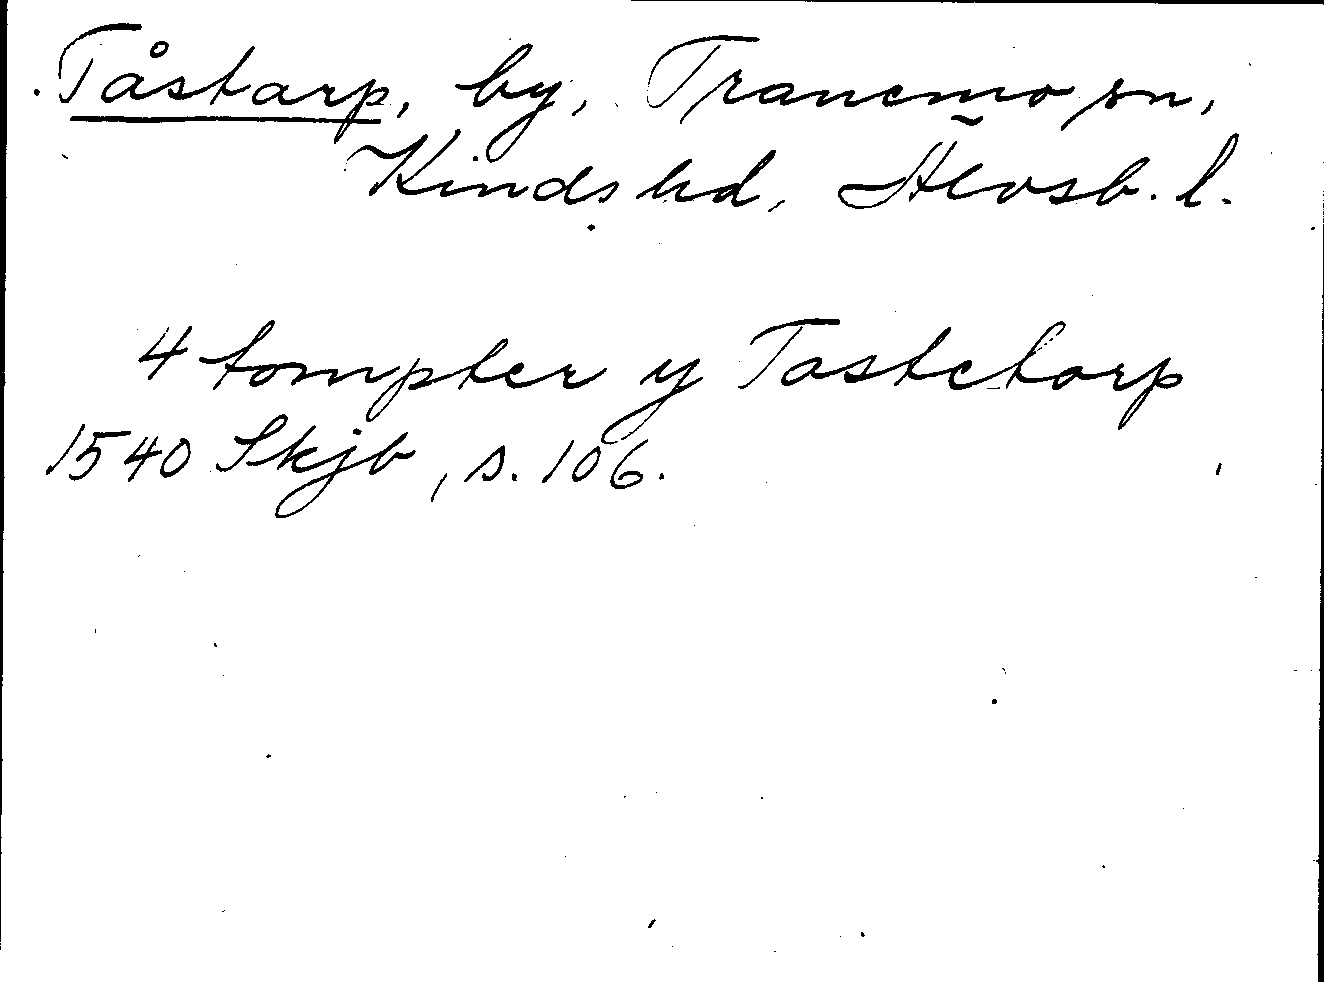 Tåstarp, by, Tranemo sn,
Kinds hd, Älvsb. l.
4 tompter y Tastetorp
1540 Skjb, s. 106.